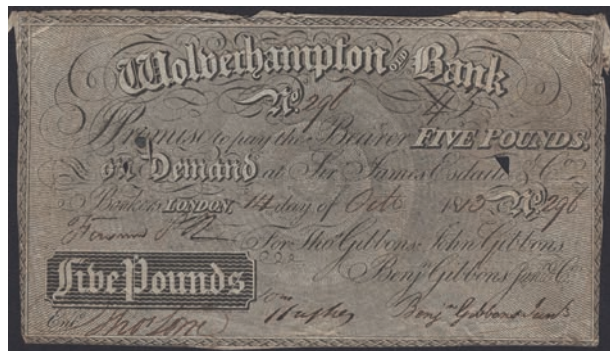 Wolverhampton OLD Bank
No. 296
I Promise to pay the Bearer FIVE POUNDS,
on Demand at Sir James Esdaile & Co.
Bankers LONDON, 14 day of Octr 1815 No. 296
For Thos. Gibbons John Gibbons
Benjn. Gibbons Junr. & Co.
Five Pounds
Entd. Benjn Gibbons Junr